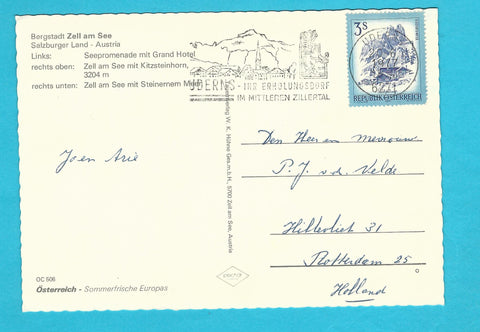 Bergstadt Zell am See
Salzburger Land - Austria
Links: Seepromenade mit Grand Hotel
rechts oben: Zell am See mit Kitzsteinhorn,
3204 m
rechts unten: Zell am See mit Steinernem Meer
UDERNS - IHR ERHOLUNGSDORF
IM MITTLEREN ZILLERTAL
3 S
UDERNS
1977
6271
REPUBLIK ÖSTERREICH
W. K. Hühne Ges.m.b.H., 5700 Zell am See, Austria
Den Heer en mevrouw
P. J. v. d. Velde
Joen Arie
Hilleliet 31
Rotterdam 25
Holland
OC 506
Österreich - Sommerfrische Europas